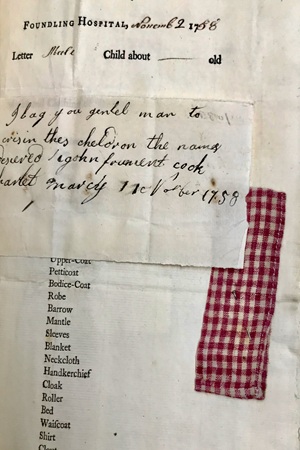 FOUNDLING HOSPITAL, Novemb 2 1758
Letter Child about old
I bag you gentel man to
crisen thes cheldron the nams
desiered John frument cock
marcy 1 November 1758
Upper-Coat
Petticoat
Bodice-Coat
Robe
Barrow
Mantle
Sleeves
Blanket
Neckcloth
Handkerchief
Cloak
Roller
Bed
Waiſcoat
Shirt